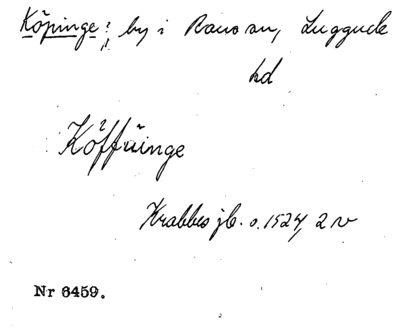 Köpinge; by i Raus sn, Luggude
hd
Köffuinge
Krabbes jb. o. 1524, 2 v
Nr 6459.